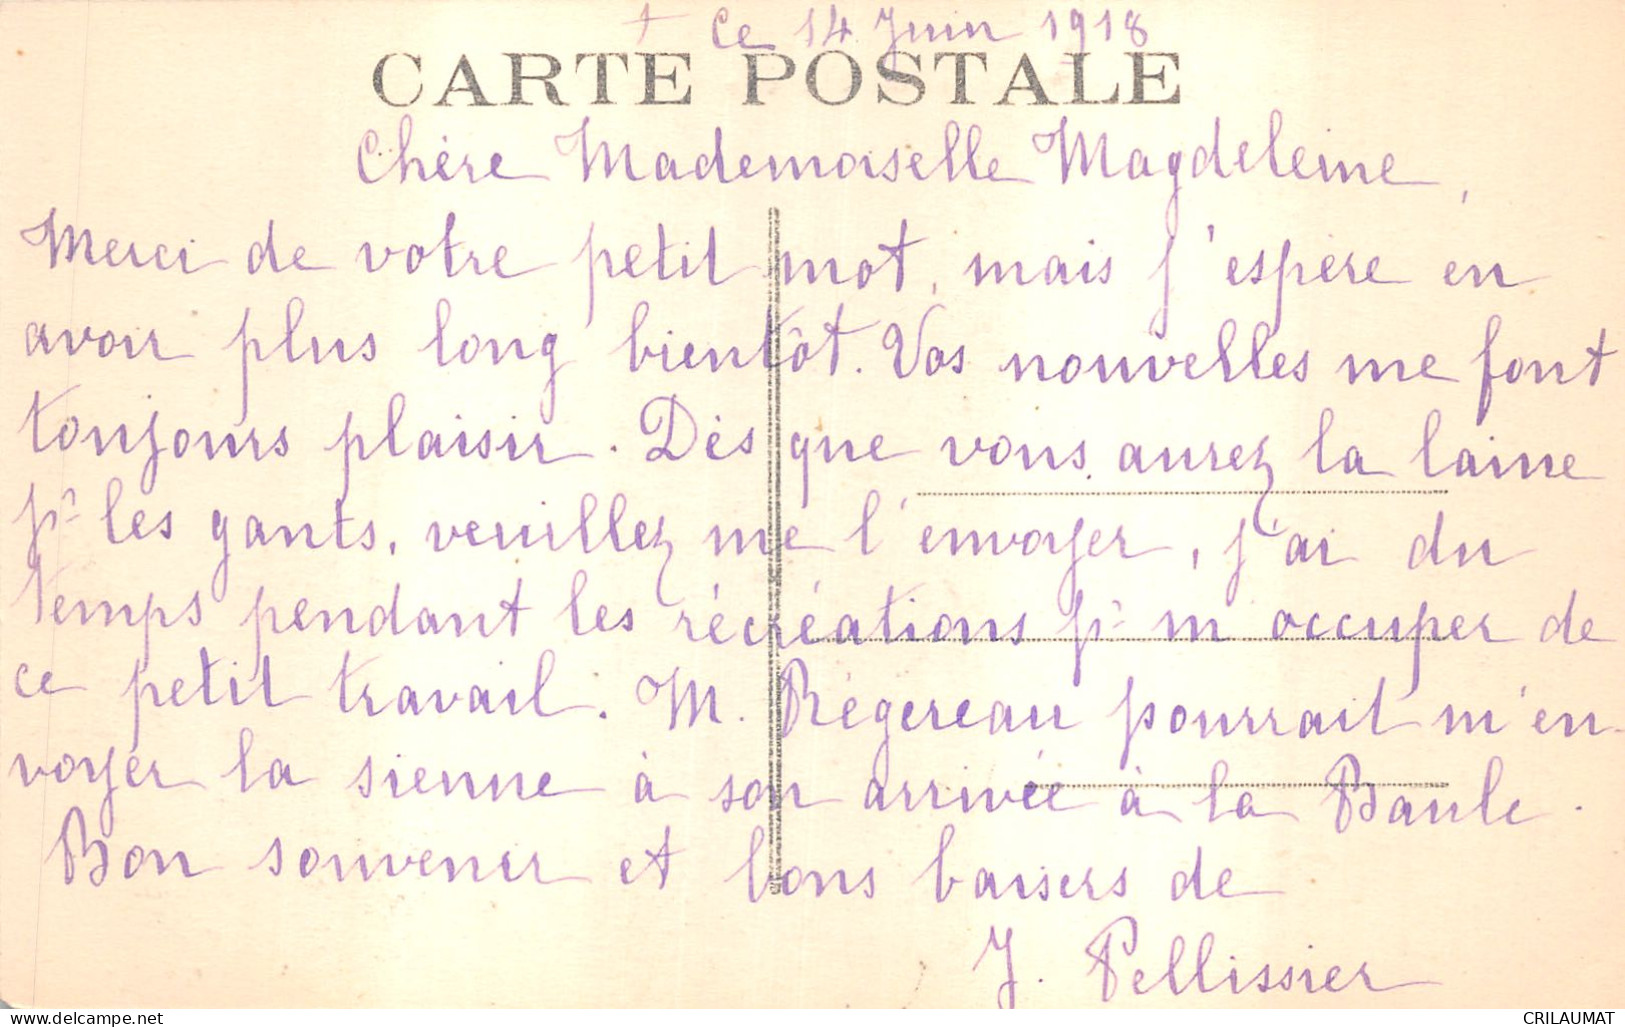 † ce 14 Juin 1918
CARTE POSTALE
Chère Mademoiselle Magdeleine,
Merci de votre petit mot, mais j'espère en
avoir plus long bientôt. Vos nouvelles me font
toujours plaisir. Dès que vous aurez la laine
pr les gants, veuillez me l'envoyer, j'ai du
temps pendant les récréations pr m'occuper de
ce petit travail. M. Régereau pourrait m'en-
voyer la sienne à son arrivée à la Baule.
Bon souvenir et bons baisers de
J. Pellissier
www.delcampe.net
CRILAUMAT